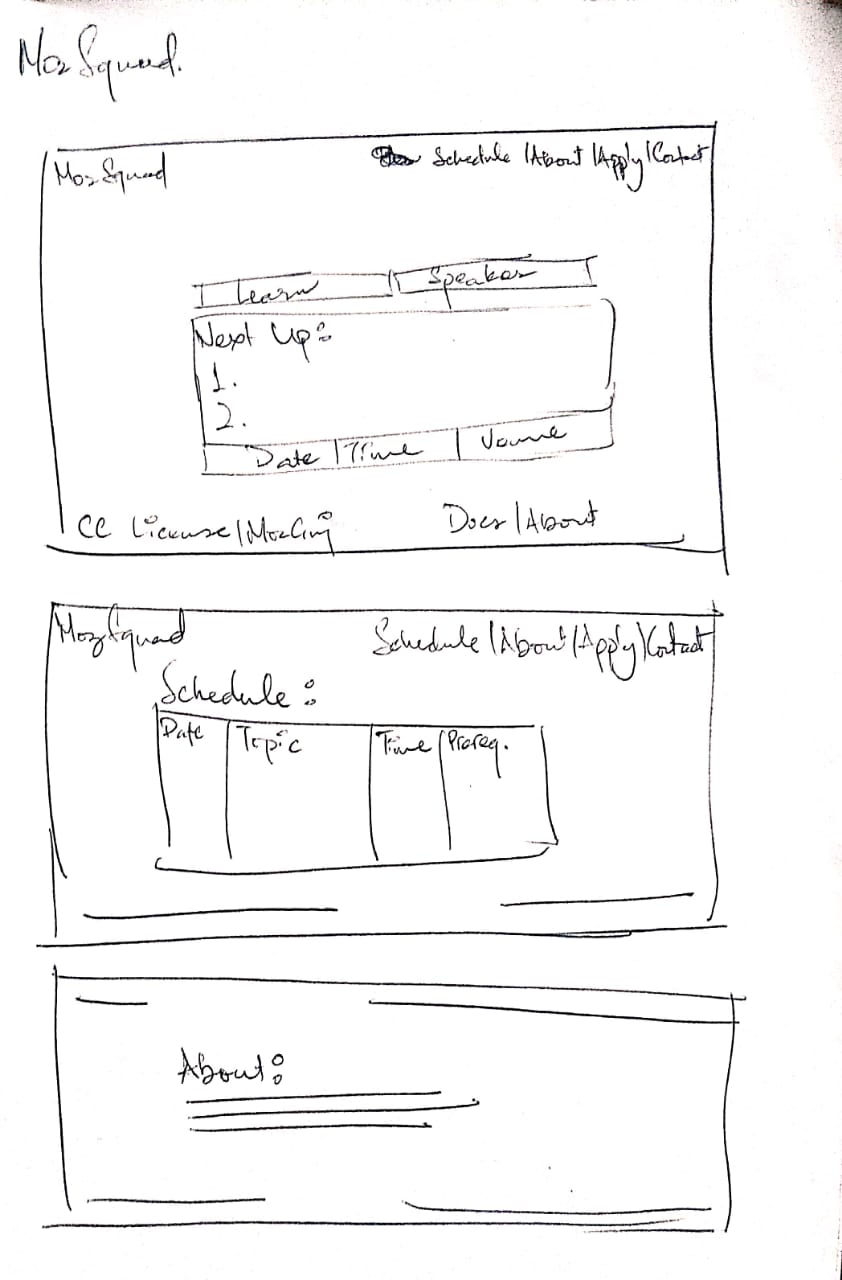 Moz Squad.
Moz Squad
Schedule | About | Apply | Contact
Learn
Speaker
Next Up:
1.
2.
Date | Time | Venue
CC License |
Docs | About
MozSquad
Schedule | About | Apply | Contact
Schedule :
Date
Topic
Time
Prereq.
About :